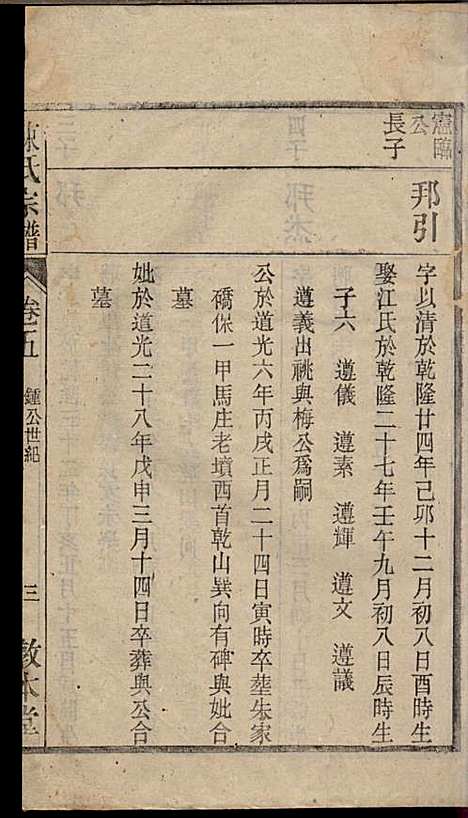 憲臨
公
長子
邦引
字以清於乾隆廿四年己卯十二月初八日酉時生
娶江氏於乾隆二十七年壬午九月初八日辰時生
子六 遵儀 遵素 遵輝 遵文 遵議
遵義出祧與梅公爲嗣
公於道光六年丙戌正月二十四日寅時卒塟朱家
礄保一甲馬庄老墳西首乾山巽向有碑與妣合
墓
妣於道光二十八年戊申三月十四日卒葬與公合
墓
陳氏宗譜
卷五
鍾公世紀
三
敦本堂